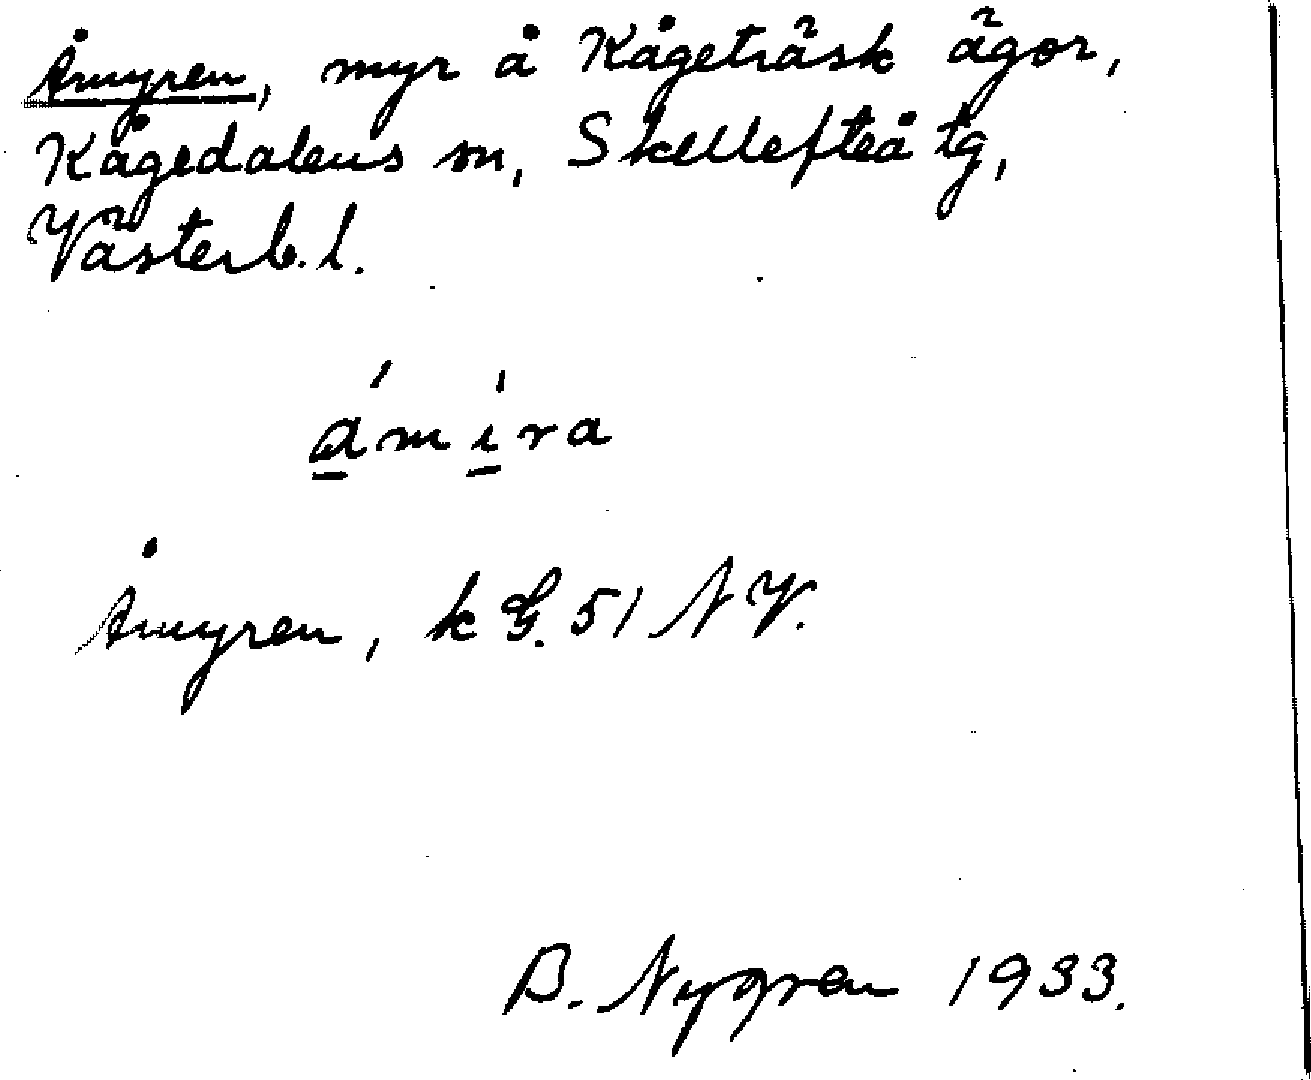 Åmyren, myr å Kågeträsk ägor,
Kågedalens sn, Skellefteå tg,
Västerb. l.
ámíra
Åmyren, k G. 51 N V.
B. Nygren 1933.